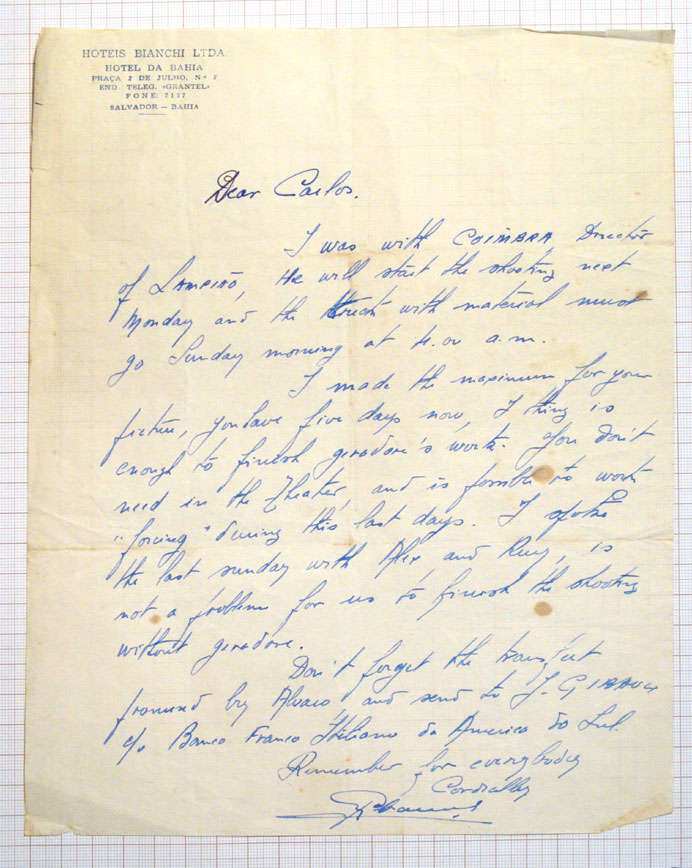 HOTEIS BIANCHI LTDA.
HOTEL DA BAHIA
PRAÇA 2 DE JULHO, N.º 2
END. TELEG. «GRANTEL»
FONE 7127
SALVADOR — BAHIA
Dear Carlos.
I was with COIMBRA Director
of LAMPIÃO, He will start the shooting next
Monday and the truck with material must
go Sunday morning at 4.00 a.m.
I made the maximum for your
picture, you have five days now, I thing is
enough to finish geradore's work. You don't
need in the Theater, and is possible to work
"forcing" during this last days. I spoke
the last sunday with Alex and Ruy, is
not a problem for us to finish the shooting
without geradore.
Don't forget the
promised by Alvaro, and send to J-
c/o Banco Franco Italiano da America do Sul.
Remember for everybody
Cordially